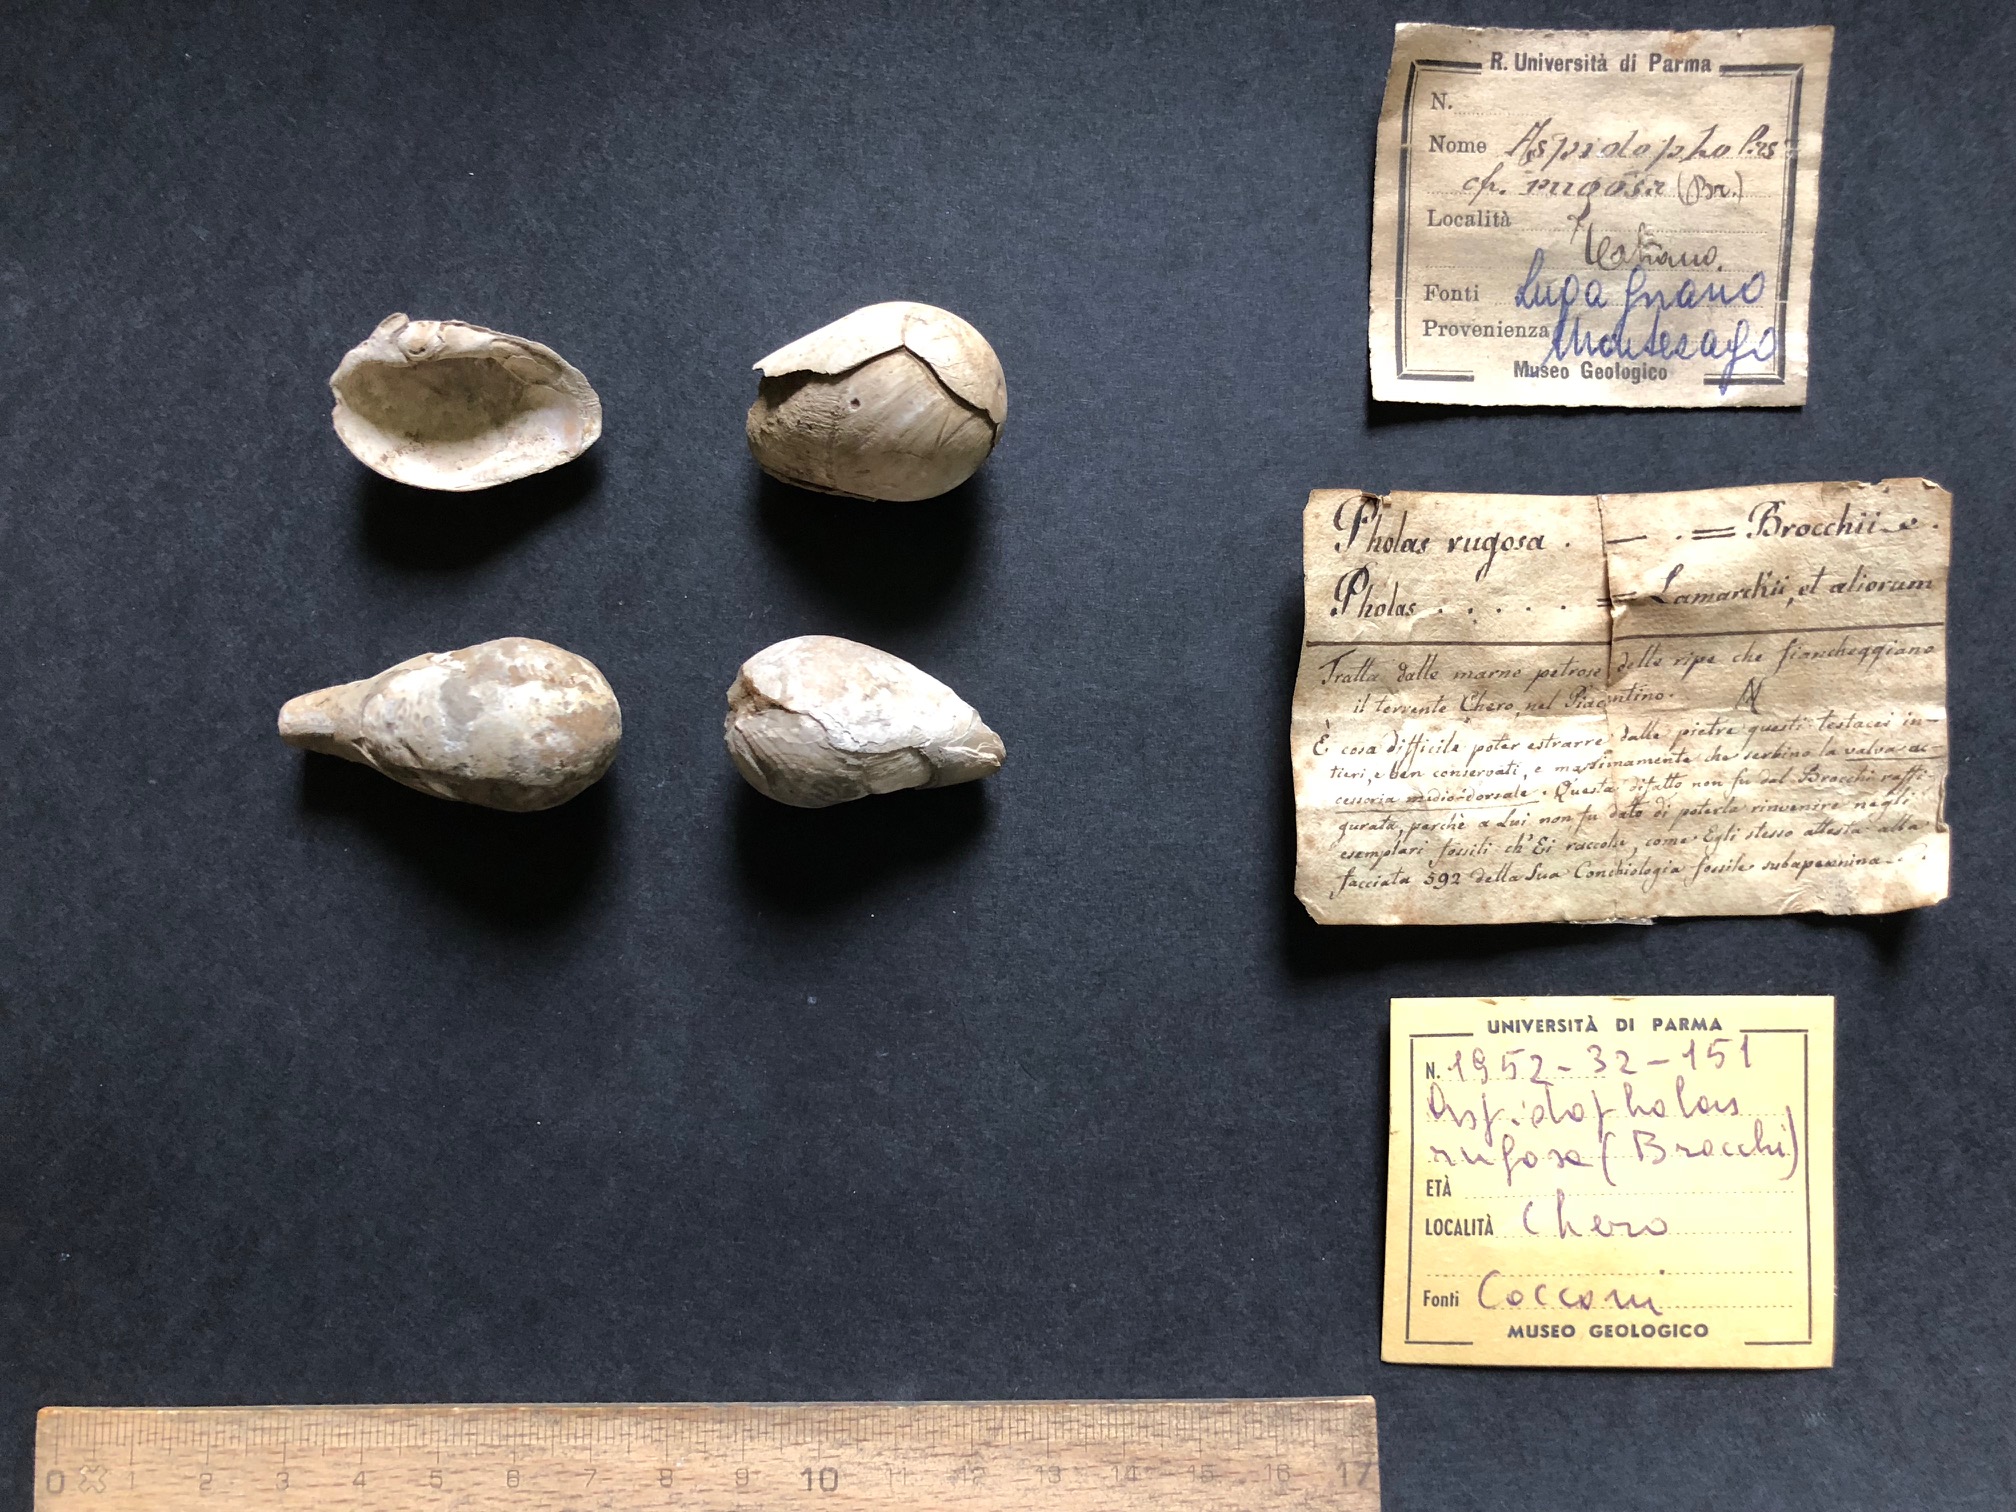 R. Università di Parma
N.
Nome Aspidopholas
cfr. rugosa (Br.)
Località
Fonti Lugagnano
Provenienza Montezago
Museo Geologico
Pholas rugosa . — . = Brocchii e.
Pholas . . . . . = Lamarckii, et aliorum
Tratta dalle marne petrose delle ripe che fiancheggiano
il torrente Chero, nel Piacentino.
È cosa difficile poter estrarre dalle pietre questi testacei in-
tieri, e ben conservati, e massimamente che serbino la valva ac-
cessoria mediodorsale. Questa difatto non fu dal Brocchi raffi-
gurata, perchè a Lui non fu dato di poterla rinvenire negli
esemplari fossili ch'Ei raccolse, come Egli stesso attesta alla
facciata 592 della Sua Conchiologia fossile subapennina.
UNIVERSITÀ DI PARMA
N. 1952-32-151
Aspidopholas
rugosa (Brocchi)
ETÀ
LOCALITÀ Chero
Fonti Cocconi
MUSEO GEOLOGICO
0 1 2 3 4 5 6 7 8 9 10 11 12 13 14 15 16 17